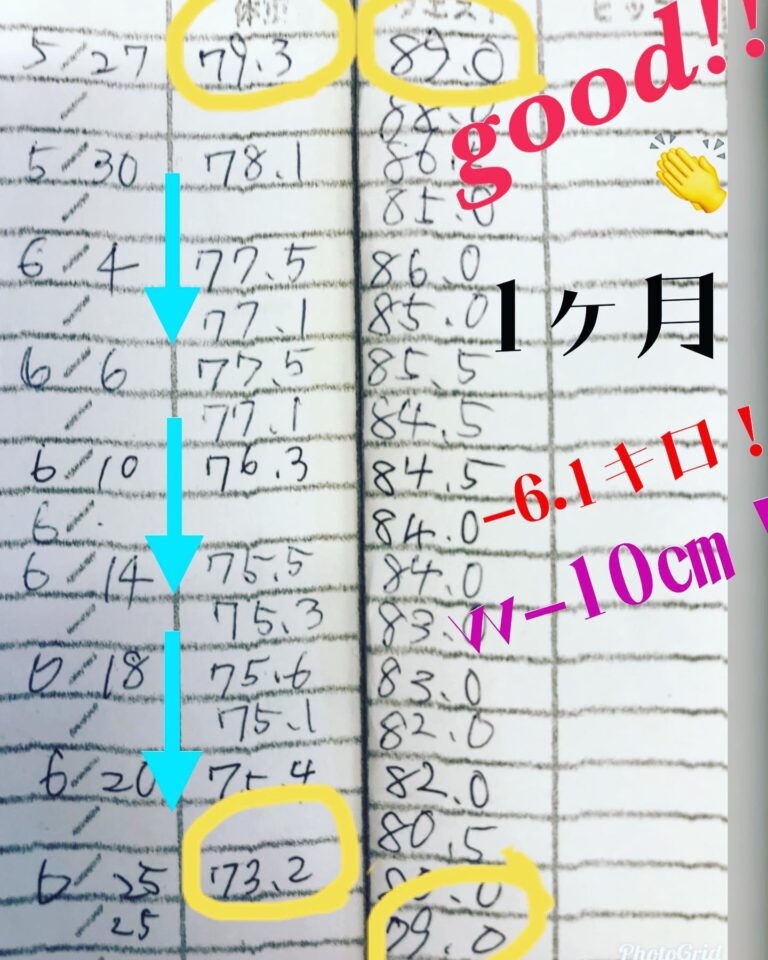 体重 ウエスト ヒップ
5/27 79.3 89.0
good!!
/ 88.0
5/30 78.1
/ 85.0
6/4 77.5 86.0
/ 77.1 85.0
1ヶ月
6/6 77.5 85.5
/ 77.1 84.5
6/10 76.3 84.5
-6.1キロ!
6/ 84.0
6/14 75.5 84.0
w-10cm
/ 75.3 83.0
6/18 75.6 83.0
/ 75.1 82.0
6/20 75.4 82.0
/ 80.5
6/25 73.2
/25 79.0
PhotoGrid